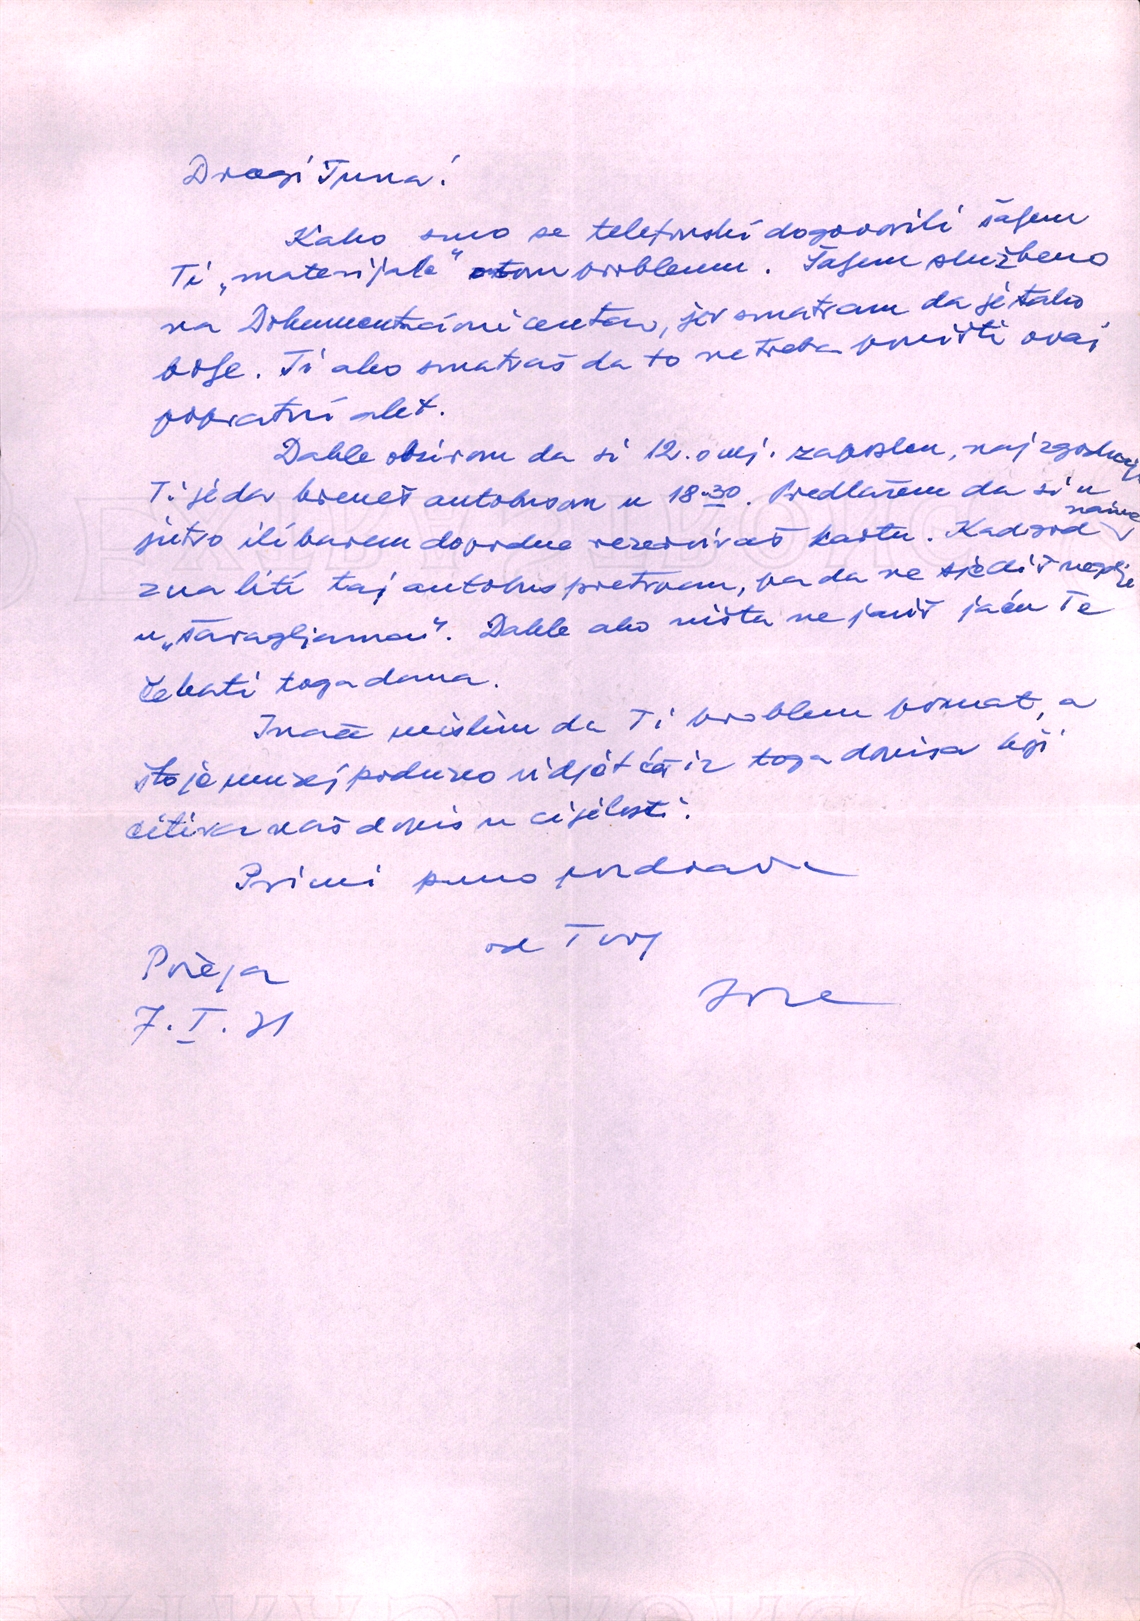 Dragi Tuna!
Kako smo se telefonski dogovorili šaljem
Ti „materijale" o tom problemu. Šaljem službeno
na Dokumentacioni centar, jer smatram da je tako
bolje. Ti ako smatraš da to ne treba poništi ovaj
popratni akt.
Dakle obzirom da si 12. o mj. zaposlen, najzgodnije
Ti je da kreneš autobusom u 18.30. Predlažem da si u
jutro ili barem dopodne rezerviraš kartu. Kadgod naime
zna biti taj autobus pretrpan, pa da ne sjediš negdje
u „ ". Dakle ako ništa ne javiš ja ću Te
čekati toga dana.
Inače mislim da Ti problem poznat, a
što je muzej poduzeo vidjet ćeš iz toga dopisa koji
citira naš dopis u cijelosti.
Primi puno pozdrava
od Tvog
Požega
Joze
7. I. 71